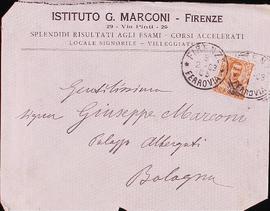 ISTITUTO G. MARCONI - FIRENZE
29 - Via Pinti - 29
SPLENDIDI RISULTATI AGLI ESAMI - CORSI ACCELERATI
LOCALE SIGNORILE - VILLEGGIAT
FERROVIA
Gentilissima
Signora Giuseppe Marconi
Palazzo Albergati
Bologna